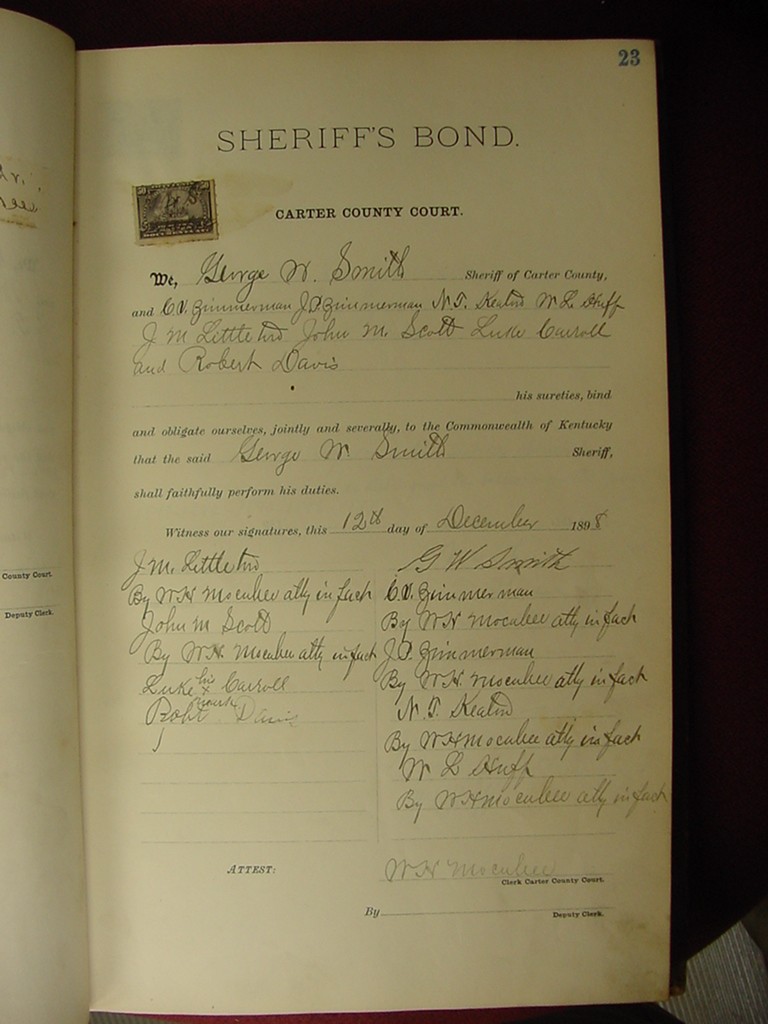 23
SHERIFF'S BOND.
CARTER COUNTY COURT.
We, George W. Smith Sheriff of Carter County,
and C.V. Zimmerman J.P. Zimmerman N.T. W L Huff
J M Littleton John M. Scott Luke Carroll
and Robert Davis
his sureties, bind
and obligate ourselves, jointly and severally, to the Commonwealth of Kentucky
that the said George W. Smith Sheriff,
shall faithfully perform his duties.
Witness our signatures, this 12th day of December 1898
J M. Littleton
By W H Mocabee atty in fact
John M Scott
By W.H. Mocabee atty in fact
Luke his x mark Carroll
Robt Davis
G W Smith
C.V. Zimmerman
By W H Mocabee atty in fact
J.P. Zimmerman
By W.H. Mocabee atty in fact
N. T.
By W H Mocabee atty in fact
W L Huff
By W H Mocabee atty in fact
ATTEST: W H Mocabee
Clerk Carter County Court.
By Deputy Clerk.
County Court.
Deputy Clerk.